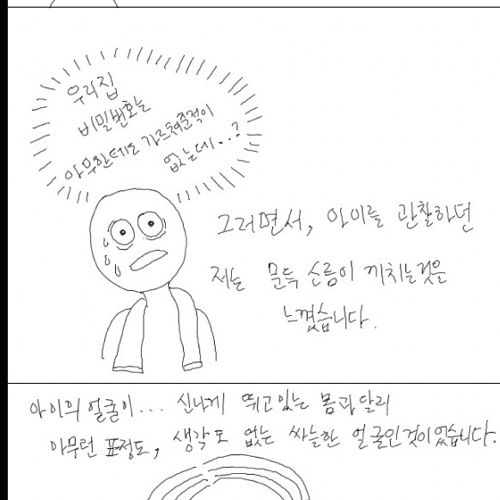 우리집
비밀번호는
아무한테도 가르쳐준적이
없는데..?
그러면서, 아이를 관찰하던
저는 문득 소름이 끼치는것은
느꼈습니다.
아이의 얼굴이... 신나게 뛰고있는 몸과달리
아무런 표정도, 생각도 없는 싸늘한 얼굴인것이었습니다.